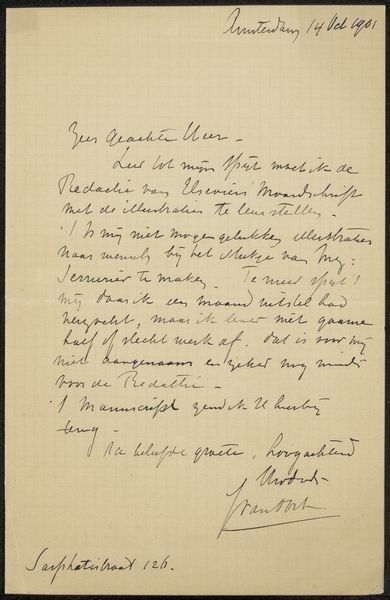 Amsterdam 14 Oct 1901
Zeer Geachte Heer -
Zeer tot mijn spijt moet ik de
Redactie van Elseviers Maandschrift
met de illustraties te leur stellen.
't Is mij niet mogen gelukken illustraties
naar wensch bij het stukje van Mej:
Serrurier te maken. Te meer spijt 't
mij daar ik een maand uitstel had
verzocht, maar ik lever niet gaarne
half of slecht werk af. dat is voor mij
niet aangenaam en zeker nog minder
voor de Redactie -
't Manuscript zend ik U hierbij
terug -
na beleefde groete, hoogachtend
UwdwDr
JvanOort
Sarphatistraat 126.